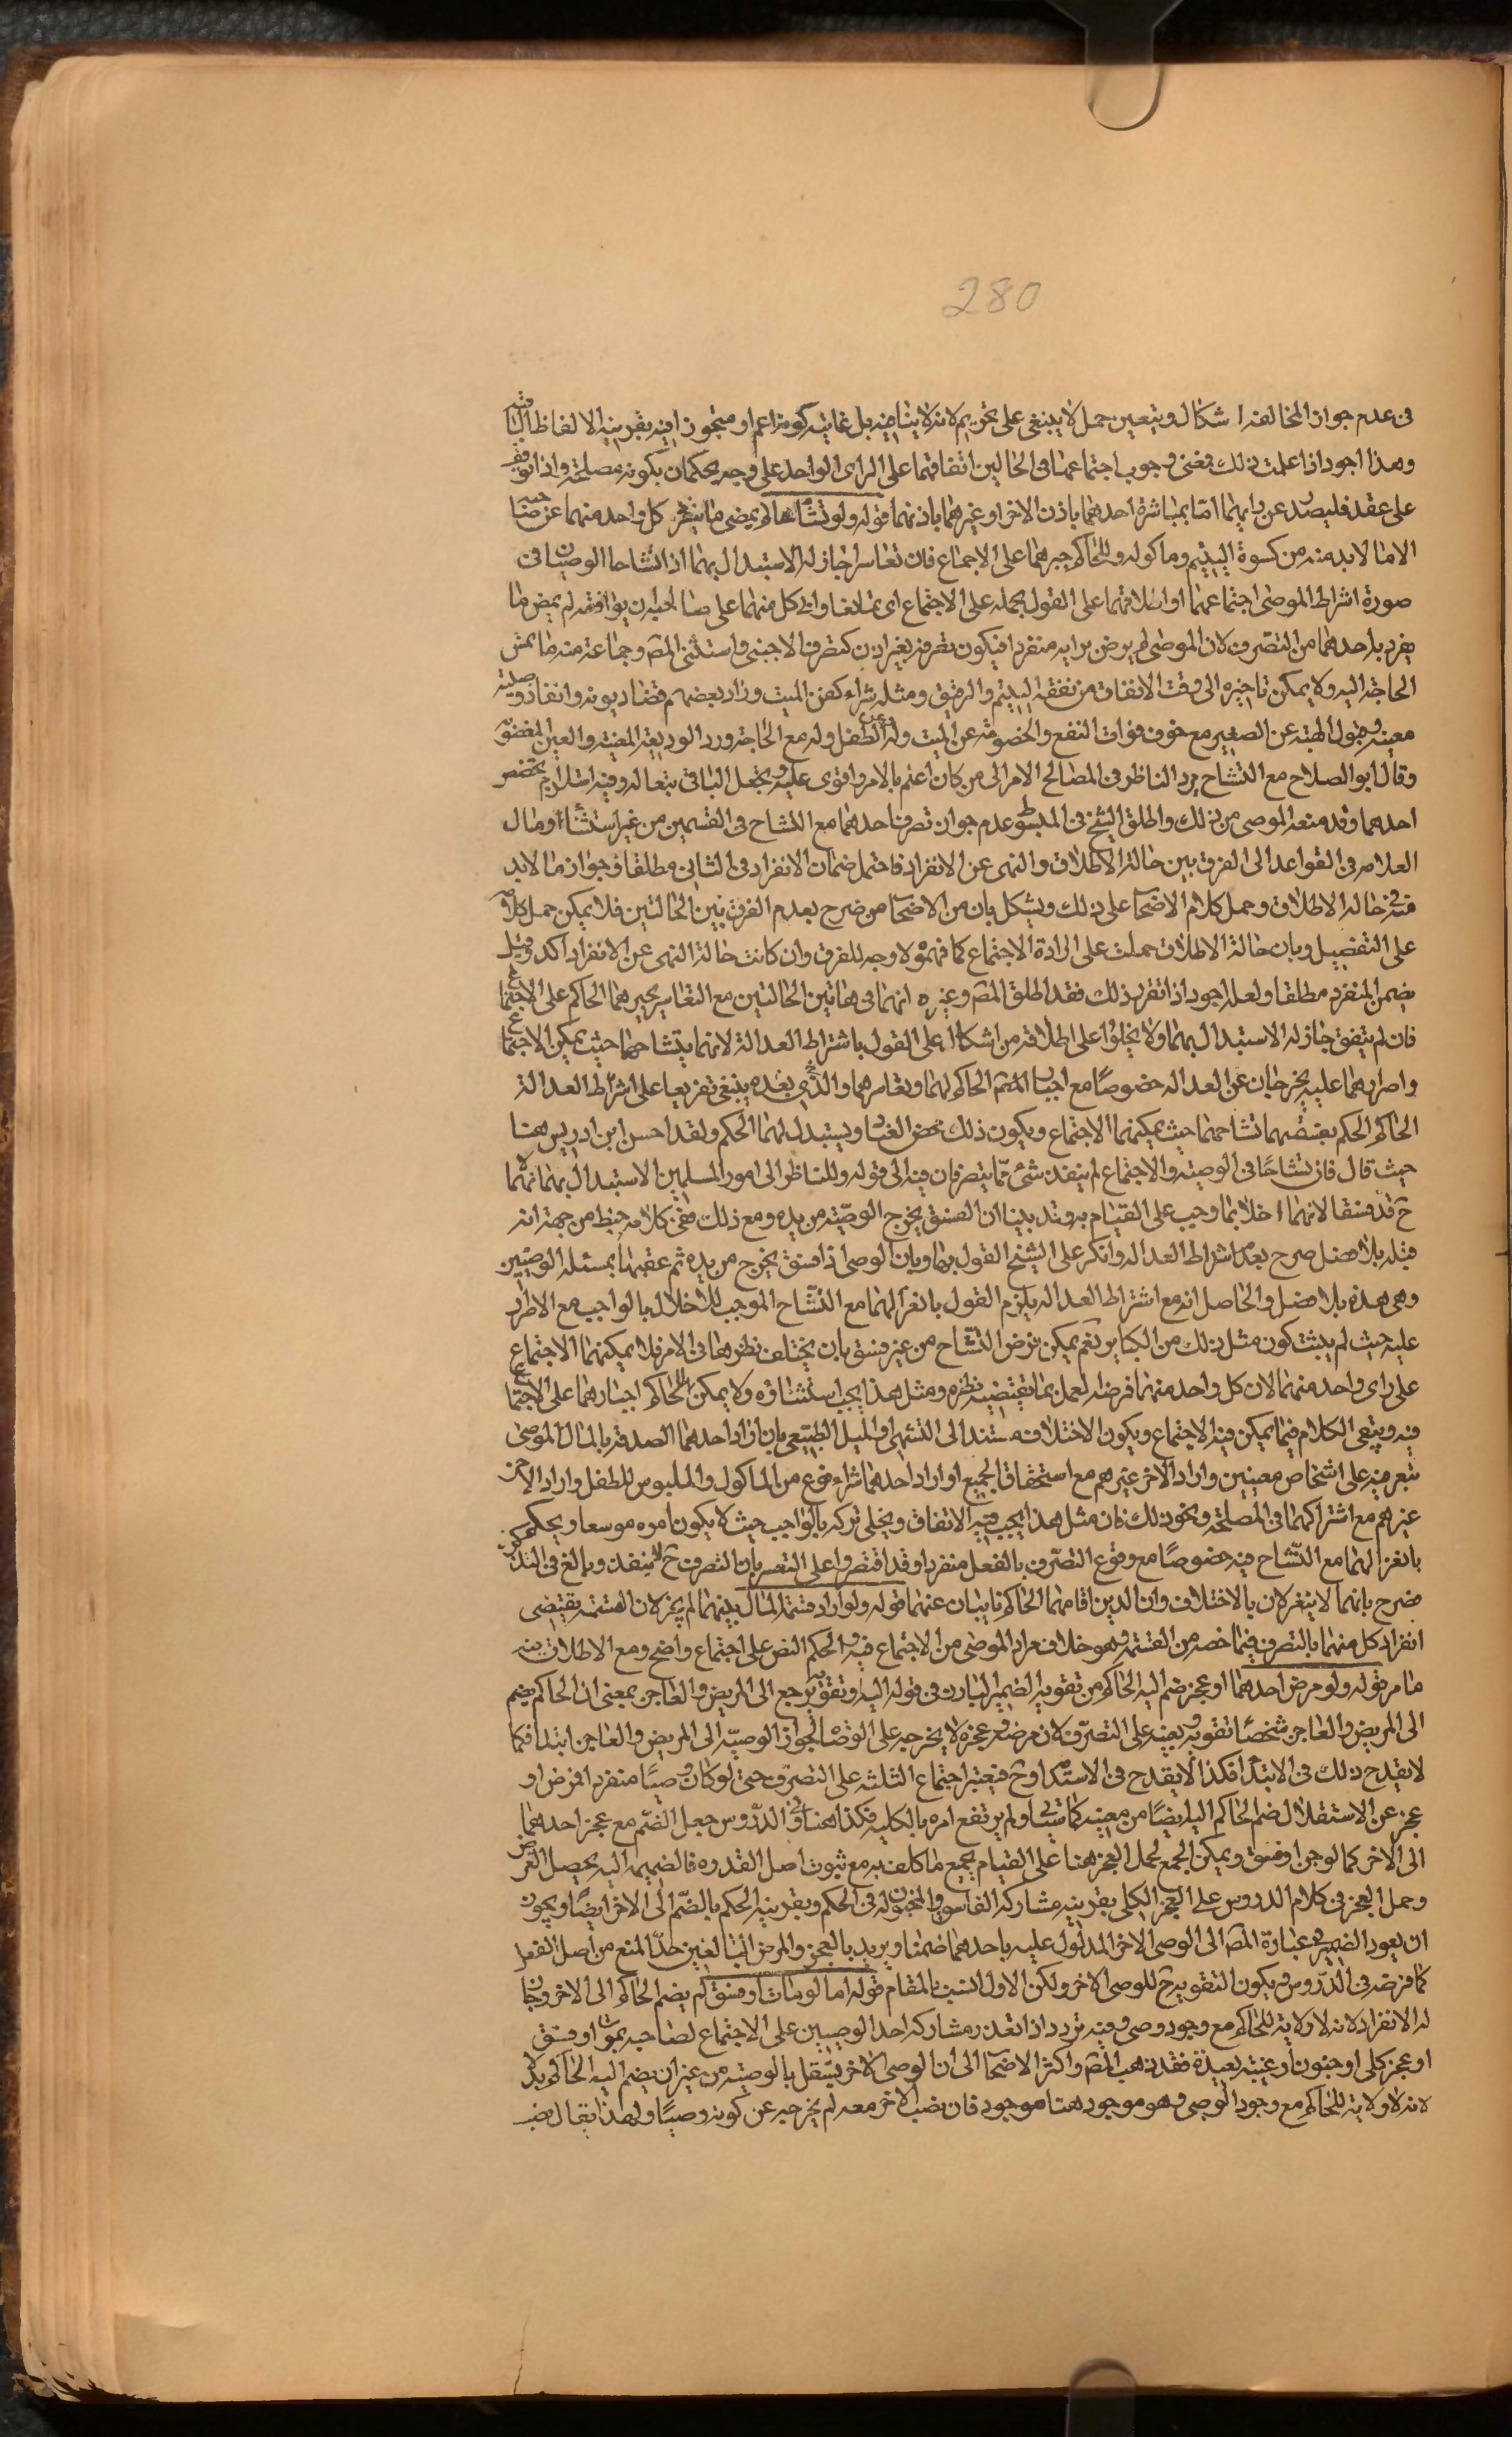 280
فى عدم جواز المخالفة اشكال ويتعين حمل لا ينبغى على تحريم لانه لا ينافيه بل غايته كونه اعم او متجوزا فيه بقرينة الالفاظ الباقية
وهذا اجود اذا علمت ذلك فمعنى وجوب اجتماعهما فى الحالين اتفاقهما على الراى الواحد على وجه يحكمان بكونه مصلحة واذا توقف
على عقد فليصدر عن رايهما اما بمباشرة احدهما باذن الاخر او غيرهما باذنهما قوله ولو تشاحا لم يمض ما ينفرد كل واحد منهما عن صاحبه
الا ما لا بد منه من كسوة اليتيم وماكوله وللحاكم جبرهما على الاجماع فان تعاسرا جاز له الاستبدال بهما اذا تشاحا الوصيان فى
صورة اشتراط الموصى اجتماعهما او اطلاقهما على القول بحمله على الاجتماع اى تمانعا وابى كل منهما على صاحبه ان يوافقه لم يمض ما
ينفرد به احدهما من التصرف لان الموصى لم يرض برايه منفردا فيكون تصرفه بغير اذن كتصرف الاجنبى واستثنى المص وجماعة منه ما تمس
الحاجة اليه ولا يمكن تاخيره الى وقت الاتفاق من نفقة اليتيم والرقيق ومثله شراء كفن الميت وزاد بعضهم قضاء ديونه وانفاذ وصية
معينة وقبول الهبة عن الصغير مع خوف فوات النفع والخصومة عن الميت وله وعن الطفل وله مع الحاجة ورد الوديعة المعينة والعين المغصوبة
وقال ابو الصلاح مع التشاح يرد الناظر فى المصالح الامر الى من كان اعلم بالامر واقوى عليه ويجعل الباقى تبعا له وفيه استلزام تخصص
احدهما وقد منعه الموصى من ذلك واطلق الشيخ فى المبسوط عدم جواز تصرف احدهما مع التشاح فى القسمين من غير استثناء ومال
العلامه فى القواعد الى الفرق بين حالة الاطلاق والنهى عن الانفراد فاحتمل ضمان الانفراد فى الثانى مطلقا وجواز ما لا بد
منه فى حالة الاطلاق وحمل كلام الاصحاب على ذلك ويشكل بان من الاصحاب من صرح بعدم الفرق بين الحالتين فلا يمكن حمل كلامهم
على التفصيل وبان حالة الاطلاق حملت على ارادة الاجتماع كما فهموه ولا وجه للفرق وان كانت حالة النهى عن الانفراد اكد وقيل
يضمن المنفرد مطلقا ولعله اجود اذا تقرر ذلك فقد اطلق المص وغيره انهما فى هاتين الحالتين مع التعاسر يجبرهما الحاكم على الاجتماع
فان لم يتفق جاز له الاستبدال بهما ولا يخلوا على اطلاقه من اشكال على القول باشتراط العدالة لانهما بتشاحهما حيث يمكن الاجتماع
واصرارهما عليه يخرجان عن العدالة خصوصًا مع اجبار الحاكم لهما وتعاسرهما والذى بعده ينبغى تفريعا على اشتراط العدالة
الحاكم الحكم بفسقهما تشاحهما حيث يمكنهما الاجتماع ويكون ذلك محض العناد ويستبدل لهما الحكم ولقد احسن ابن ادريس هنا
حيث قال فان تشاحا فى الوصية والاجتماع لم ينفذ شئ مما يتصرفان فيه الى قوله وللناظر الى امور المسلمين الاستبدال بهما لانهما
ح قد فسقا لانهما اخلا بما وجب على القيام به وقد بينا ان الفسق يخرج الوصية من يده ومع ذلك ففى كلامه خبط من جهة انه
قبله بلا فصل صرح بعدم اشتراط العدالة وانكر على الشيخ القول بها وبان الوصى اذا فسق يخرج من يده ثم عقبها بمسئلة الوصيين
وهى هذه بلا فصل والحاصل انه مع اشتراط العدالة يلزم القول بانعزالهما مع التشاح الموجب للاخلال بالواجب مع الاصرار
عليه حيث لم يثبت كون مثل ذلك من الكبائر نعم يمكن فرض التشاح من غير فسق بان يختلف نظرهما فى الامر فلا يمكنهما الاجتماع
على راى واحد منهما لان كل واحد منهما فرضه العمل بما يقتضيه نظره ومثل هذا يجب استثناؤه ولا يمكن الحاكم اجبارهما على الاجتماع
فيه ويبقى الكلام فيما يمكن فيه الاجتماع ويكون الاختلاف مستندا الى التشهى والميل الطبيعى بان اراد احدهما الصدقة بالمال الموصى
بتفرقته على اشخاص معينين واراد الاخر غيرهم مع استحقاق الجميع او اراد احدهما شراء نوع من الماكول والملبوس للطفل واراد الاخر
غيرهم مع اشتراكهما فى المصلحة ونحو ذلك فان مثل هذا يجب فيه الاتفاق ويخل تركه بالواجب حيث لا يكون امره موسعا ويحكم
بانعزالهما مع التشاح فيه خصوصًا مع وقوع التصرف بالفعل منفردا وقد اقتصروا على التعسر بان التصرف ح لا ينفذ وبالغ فى التذكرة
فصرح بانهما لا ينعزلان بالاختلاف وان الذين اقامهما الحاكم نايبان عنهما قوله ولو اراد قسمة المال بينهما لم يجز لان القسمة يقتضى
انفراد كل منهما بالتصرف فيما خصه من القسمة وهو خلاف مراد الموصى من الاجتماع فيه والحكم مع النص على اجتماع واضح ومع الاطلاق يبنى
ما مر قوله ولو مرض احدهما او عجز ضم اليه الحاكم من تقويه الضمير البارز فى قوله اليه وتقويه يرجع الى المريض والعاجز بمعنى ان الحاكم يضم
الى المريض والعاجز شخصًا تقويه ويعينه على التصرف لان مرضه وعجزه لا يخرجه على الوصاية لجواز الوصية الى المريض والعاجز ابتداء فكما
لا يقدح ذلك فى الابتداء فكذا لا يقدح فى الاستدامة وح فيعتبر اجتماع الثلثه على التصرف حتى لو كان وصيًا منفردا فمرض او
عجز عن الاستقلال ضم الحاكم اليه ايضًا من معينه كما سياتى ولم يرتفع امره بالكليه هكذا هنا وفى الدروس جعل الضم مع عجز احدهما
الى الاخر كما لو جن او فسق ويمكن الجمع بحمل العجز هنا على القيام بجميع ما كلف به مع ثبوت اصل القدره فالضميمة اليه يحصل الغرض
وحمل العجز فى كلام الدروس على العجز الكلى بقرينه مشاركه الفاسق والمجنون له فى الحكم وبقرينة الحكم بالضم الى الاخر ايضًا ويجوز
ان يعود الضمير فى عبارة المص الى الوصى الاخر المدلول عليه باحدهما ضمنا ويريد بالعجز والمرض البالغين حدّ المنع من اصل الفعل
كما فرضه فى الدروس ويكون التقويه ح للوصى الاخر ولكن الاول انسب بالمقام قوله اما لو مات او فسق لم يضم الحاكم الى الاخر وجاز
له الانفراد لانه لا ولاية للحاكم مع وجود وصى وفيه تردد اذا تعذر مشاركه احد الوصيين على الاجتماع لصاحبه بموت او فسق
او عجز كلى او جنون او غيبة بعيدة فقد ذهب المص واكثر الاصحاب الى ان الوصى الاخر يستقل بالوصية من غير ان يضم اليه الحاكم بدلا
لانه لا ولاية للحاكم مع وجود الوصى وهو موجود هنا موجود فان نصب الاخر معه لم يخرجه عن كونه وصيًا ولهذا يقال فيه